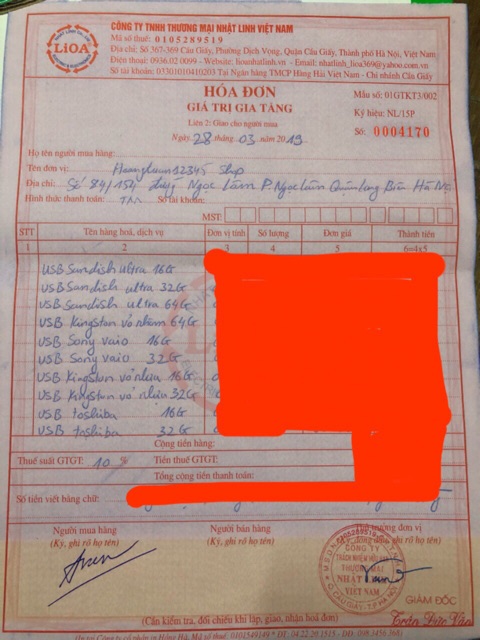 LiOA
CÔNG TY TNHH THƯƠNG MẠI NHẬT LINH VIỆT NAM
Mã số thuế: 0105289519
Địa chỉ: Số 367-369 Cầu Giấy, Phường Dịch Vọng, Quận Cầu Giấy, Thành phố Hà Nội, Việt Nam
Điện thoại: 0936.02 0099 - Website: lioanhatlinh.vn - Email: nhatlinh_lioa369@yahoo.com.vn
Số tài khoản: 03301010410203 Tại Ngân hàng TMCP Hàng Hải Việt Nam - Chi nhánh Cầu Giấy
HÓA ĐƠN
GIÁ TRỊ GIA TĂNG
Liên 2: Giao cho người mua
Ngày 28 tháng 03 năm 2019
Mẫu số: 01GTKT3/002
Ký hiệu: NL/15P
Số: 0004170
Họ tên người mua hàng:
Tên đơn vị: Hoangtuan12345 Shop
Địa chỉ: Số 84/154 Ngọc Lâm P. Ngọc Lâm Quận Long Biên Hà Nội
Hình thức thanh toán: TM Số tài khoản:
MST:
STT Tên hàng hoá, dịch vụ Đơn vị tính Số lượng Đơn giá Thành tiền
1 2 3 4 5 6=4x5
USB Sandish ultra 16G
USB Sandish ultra 32G
USB Sandish ultra 64G
USB Kingston vỏ nhôm 64G
USB Sony vaio 16G
USB Sony vaio 32G
USB Kingston vỏ nhựa 16G
USB Kingston vỏ nhựa 32G
USB toshiba 16G
USB toshiba 32G
Cộng tiền hàng:
Thuế suất GTGT: 10 % Tiền thuế GTGT:
Tổng cộng tiền thanh toán:
Số tiền viết bằng chữ:
Người mua hàng Người bán hàng Thủ trưởng đơn vị
(Ký, ghi rõ họ tên) (Ký, ghi rõ họ tên)
0105289519
CÔNG TY
TRÁCH NHIỆM HỮU HẠN
THƯƠNG MẠI
NHẬT LINH
Q. CẦU GIẤY - T.P HÀ NỘI
GIÁM ĐỐC
Trần Đức Văn
(Cần kiểm tra, đối chiếu khi lập, giao, nhận hoá đơn)